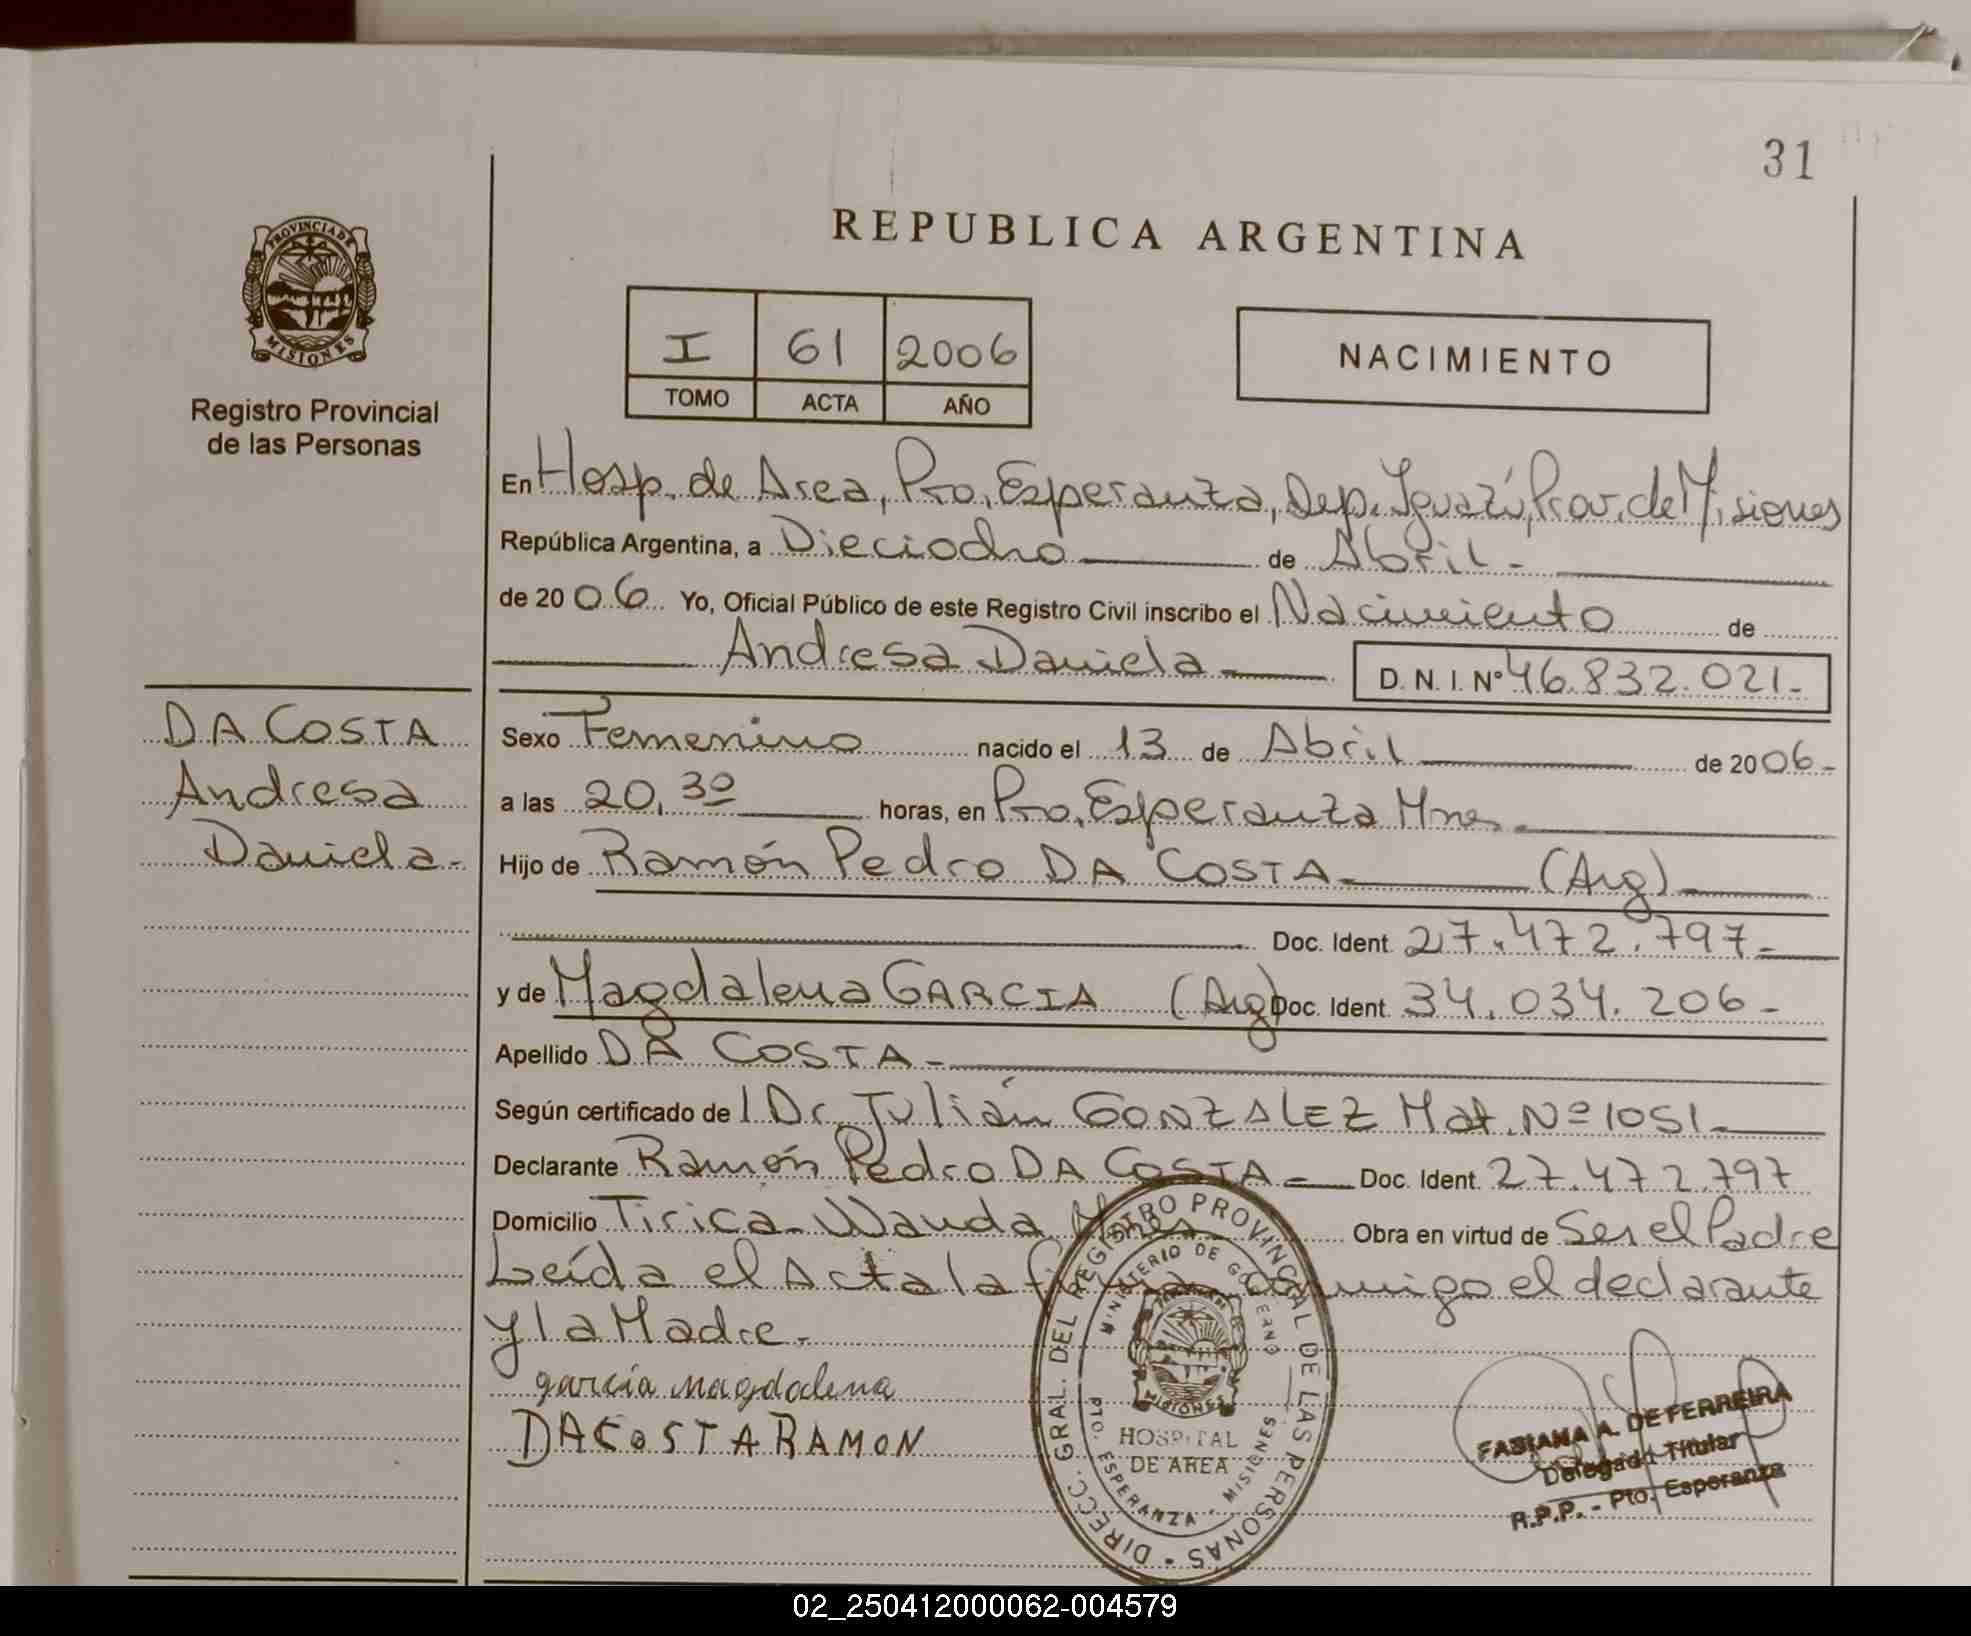 31
REPUBLICA ARGENTINA
PROVINCIA DE
MISIONES
Registro Provincial
de las Personas
I 61 2006
TOMO ACTA AÑO
NACIMIENTO
En Hosp. de Area, Pto. Esperanza, Dep. Iguazú, Prov. de Misiones
República Argentina, a Dieciocho de Abril -
de 20 06 Yo, Oficial Público de este Registro Civil inscribo el Nacimiento de
Andresa Daniela D. N. I. N° 46.832.021-
DA COSTA
Andresa
Daniela-
Sexo Femenino nacido el 13 de Abril de 20 06-
a las 20,30 horas, en Pto. Esperanza Mnes-
Hijo de Ramón Pedro DA COSTA- (Arg)
Doc. Ident. 27.472.797-
y de Magdalena GARCIA (Arg) Doc. Ident. 34.034.206-
Apellido DA COSTA-
Según certificado de l Dr. Julián GONZALEZ Mat. Nº 1051-
Declarante Ramón Pedro DA COSTA- Doc. Ident. 27.472.797
Domicilio Tirica- Wanda Mnes- Obra en virtud de Ser el Padre
Leída el Acta la firma conmigo el declarante
y la Madre.
garcia magdalena
DACOSTA RAMON
DIRECC. GRAL. DEL REGISTRO PROVINCIAL DE LAS PERSONAS
MINISTERIO DE GOBIERNO
MISIONES
HOSPITAL
DE AREA
PTO. ESPERANZA - MISIONES
FABIANA A. DE FERREIRA
Delegada Titular
R.P.P. - Pto. Esperanza
02_250412000062-004579